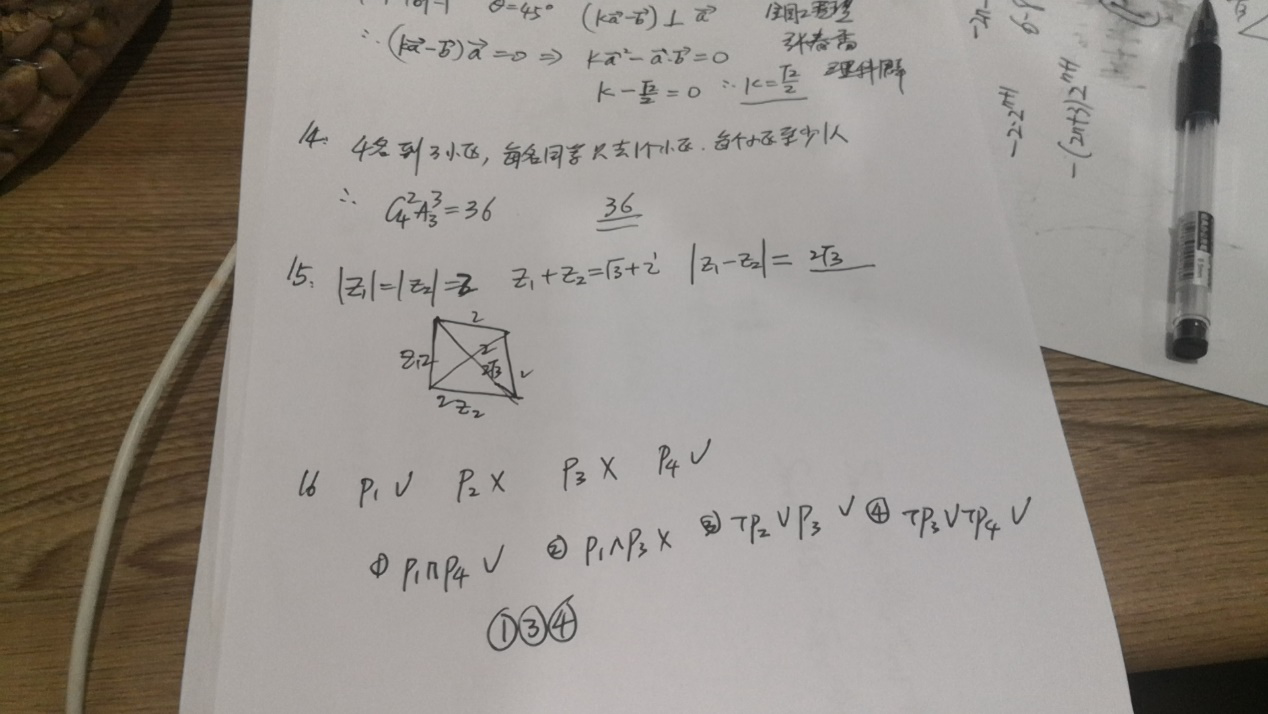 θ=45° (ka⃗-b⃗)⊥a⃗
∴(ka⃗-b⃗)a⃗=0⇒ ka⃗²-a⃗·b⃗=0
k-√2/2=0 ∴k=√2/2
14. 4名到3小区,每名同学只去1个小区.每个小区至少1人
∴ C₄²A₃³=36 36
15. |z₁|=|z₂|=2 z₁+z₂=√3+i |z₁-z₂|=2√3
2
z₁2 2 2√3 2
2 z₂
16 P₁ ∨ P₂ × P₃ × P₄ ∨
① P₁∧P₄ ∨ ② P₁∧P₃ × ③ ¬P₂∨P₃ ∨ ④ ¬P₃∨¬P₄ ∨
①③④